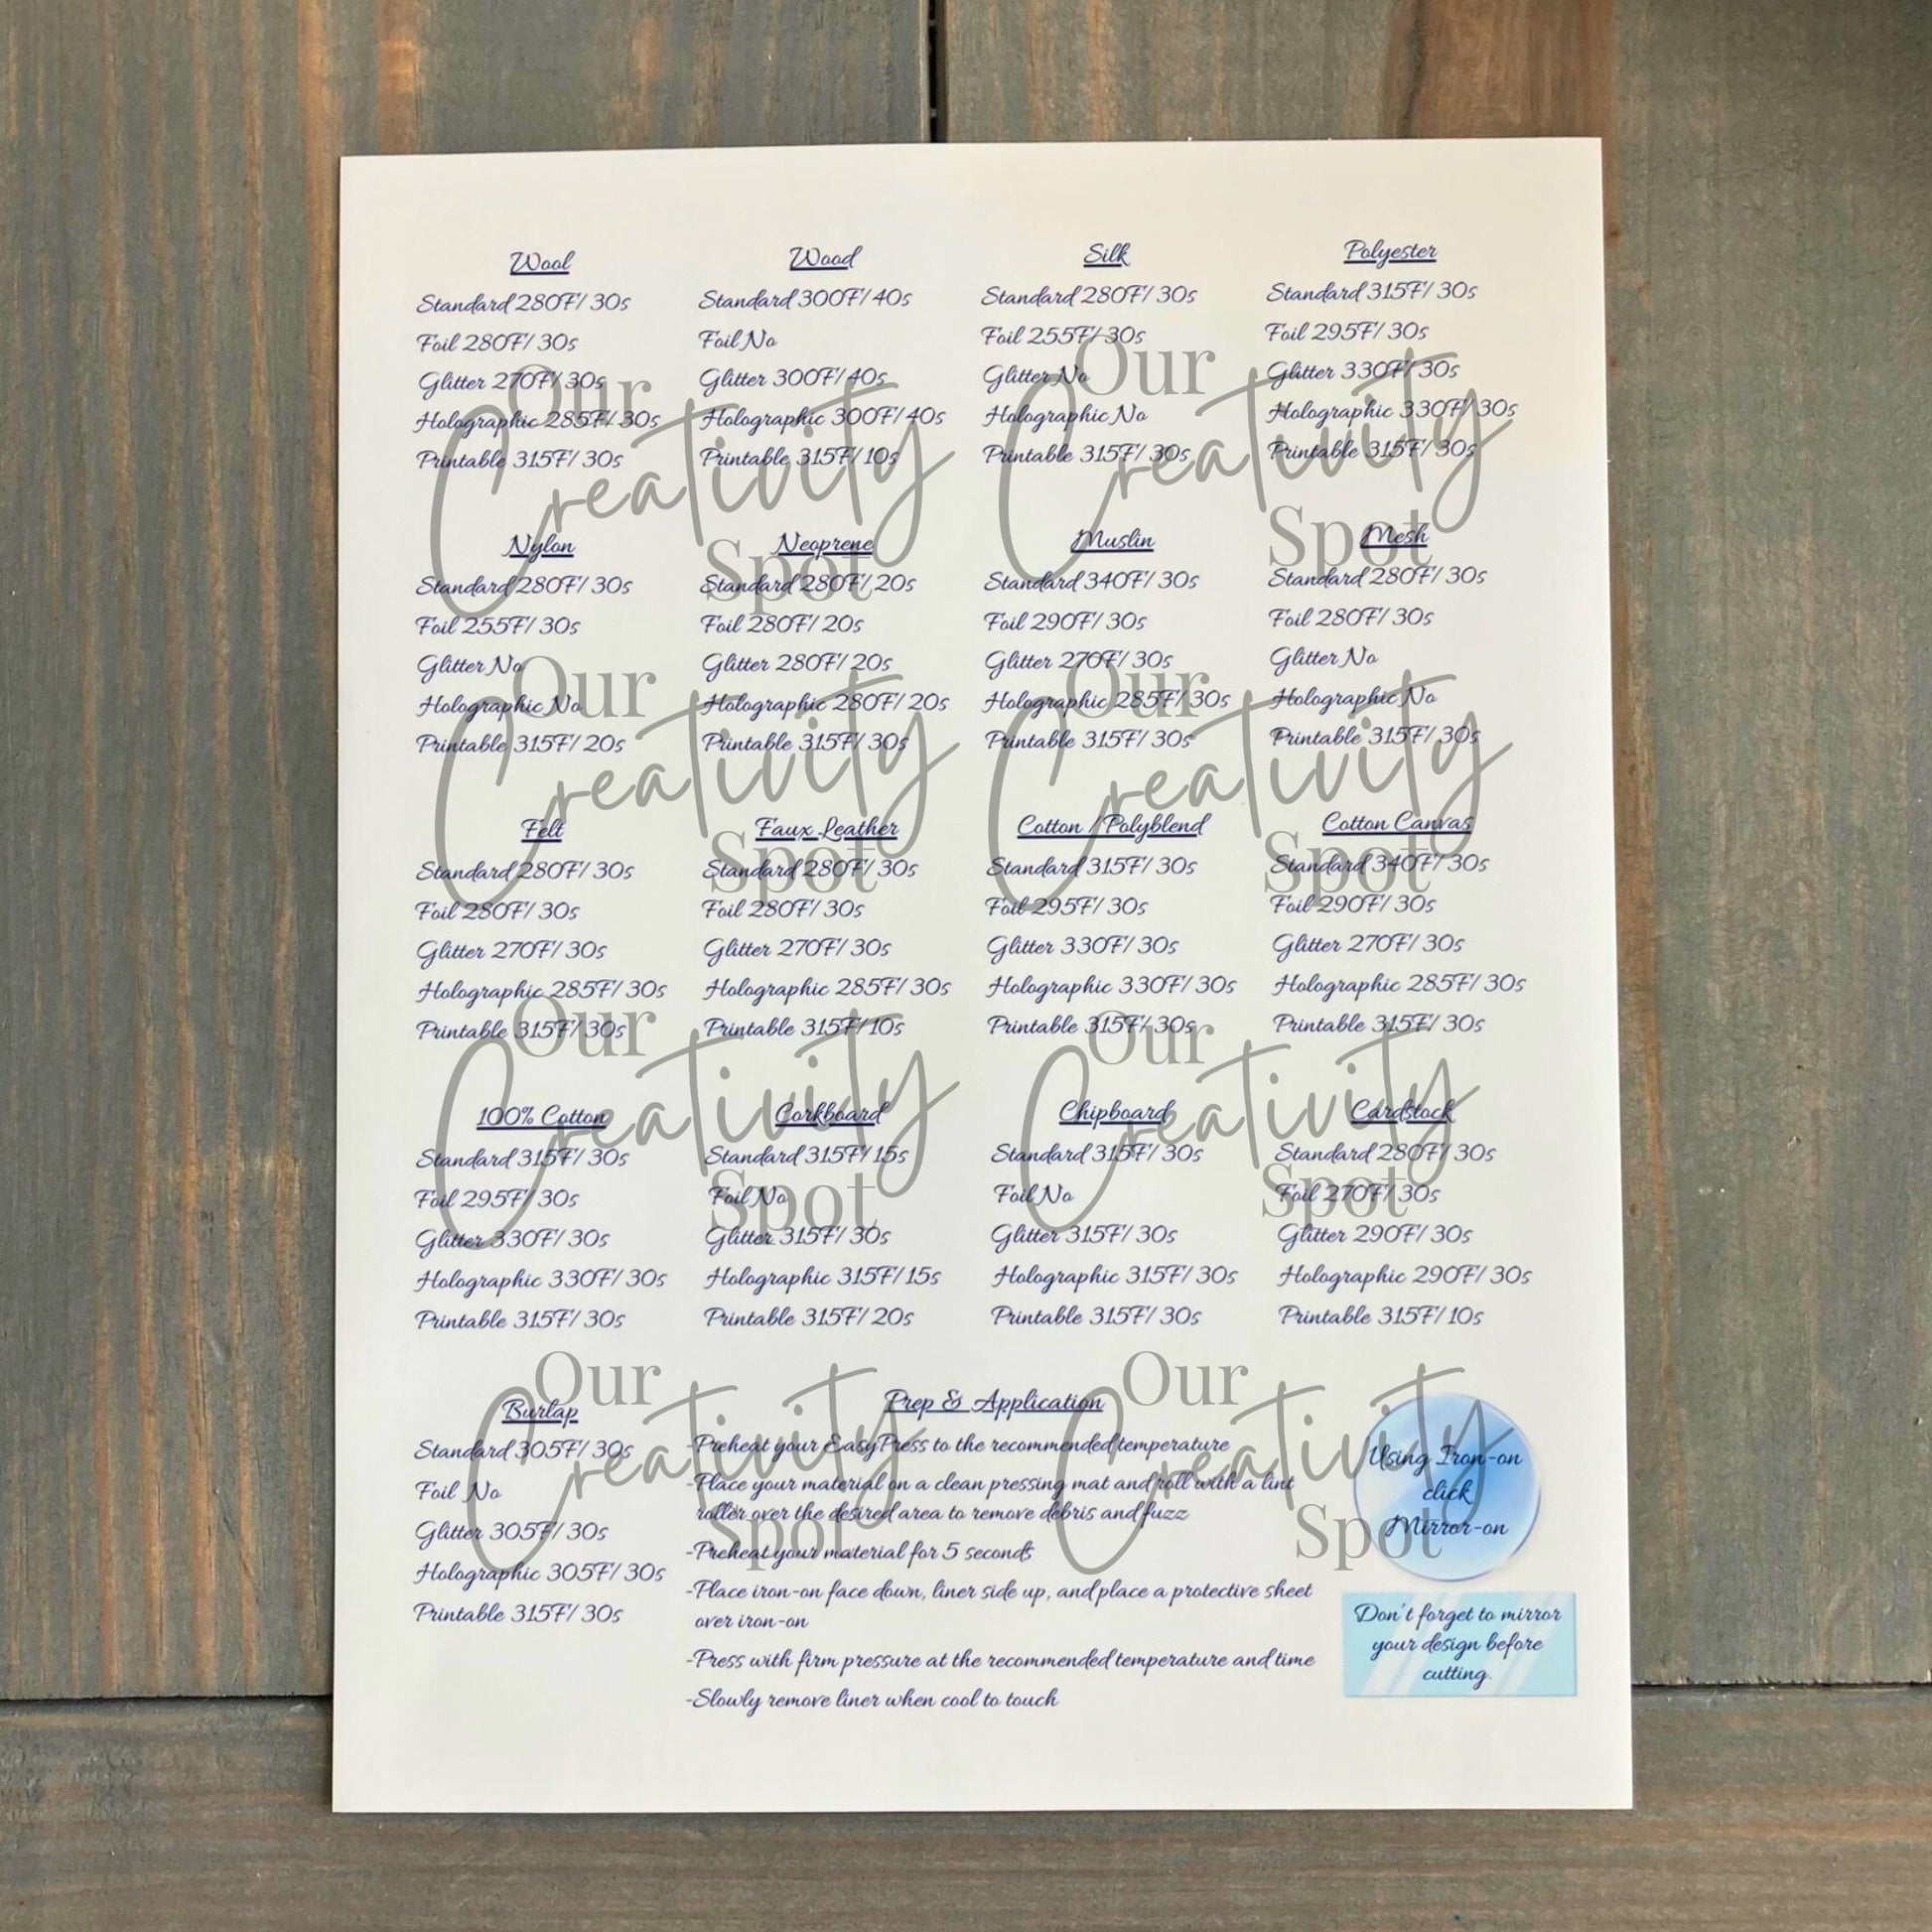 Wool
Standard 280F/ 30s
Foil 280F/ 30s
Glitter 270F/ 30s
Holographic 285F/ 30s
Printable 315F/ 30s
Wood
Standard 300F/ 40s
Foil No
Glitter 300F/ 40s
Holographic 300F/ 40s
Printable 315F/ 10s
Silk
Standard 280F/ 30s
Foil 255F/ 30s
Glitter No
Holographic No
Printable 315F/ 30s
Polyester
Standard 315F/ 30s
Foil 295F/ 30s
Glitter 330F/ 30s
Holographic 330F/ 30s
Printable 315F/ 30s
Our
Creativity
Spot
Our
Creativity
Spot
Nylon
Standard 280F/ 30s
Foil 255F/ 30s
Glitter No
Holographic No
Printable 315F/ 20s
Neoprene
Standard 280F/ 20s
Foil 280F/ 20s
Glitter 280F/ 20s
Holographic 280F/ 20s
Printable 315F/ 30s
Muslin
Standard 340F/ 30s
Foil 290F/ 30s
Glitter 270F/ 30s
Holographic 285F/ 30s
Printable 315F/ 30s
Mesh
Standard 280F/ 30s
Foil 280F/ 30s
Glitter No
Holographic No
Printable 315F/ 30s
Our
Creativity
Spot
Our
Creativity
Spot
Felt
Standard 280F/ 30s
Foil 280F/ 30s
Glitter 270F/ 30s
Holographic 285F/ 30s
Printable 315F/ 30s
Faux Leather
Standard 280F/ 30s
Foil 280F/ 30s
Glitter 270F/ 30s
Holographic 285F/ 30s
Printable 315F/ 10s
Cotton / Polyblend
Standard 315F/ 30s
Foil 295F/ 30s
Glitter 330F/ 30s
Holographic 330F/ 30s
Printable 315F/ 30s
Cotton Canvas
Standard 340F/ 30s
Foil 290F/ 30s
Glitter 270F/ 30s
Holographic 285F/ 30s
Printable 315F/ 30s
Our
Creativity
Spot
Our
Creativity
Spot
100% Cotton
Standard 315F/ 30s
Foil 295F/ 30s
Glitter 330F/ 30s
Holographic 330F/ 30s
Printable 315F/ 30s
Corkboard
Standard 315F/ 15s
Foil No
Glitter 315F/ 30s
Holographic 315F/ 15s
Printable 315F/ 20s
Chipboard
Standard 315F/ 30s
Foil No
Glitter 315F/ 30s
Holographic 315F/ 30s
Printable 315F/ 30s
Cardstock
Standard 280F/ 30s
Foil 270F/ 30s
Glitter 290F/ 30s
Holographic 290F/ 30s
Printable 315F/ 10s
Our
Creativity
Spot
Our
Creativity
Spot
Burlap
Standard 305F/ 30s
Foil No
Glitter 305F/ 30s
Holographic 305F/ 30s
Printable 315F/ 30s
Prep & Application
-Preheat your EasyPress to the recommended temperature
-Place your material on a clean pressing mat and roll with a lint
roller over the desired area to remove debris and fuzz
-Preheat your material for 5 seconds
-Place iron-on face down, liner side up, and place a protective sheet
over iron-on
-Press with firm pressure at the recommended temperature and time
-Slowly remove liner when cool to touch
Using Iron-on
click
Mirror-on
Don't forget to mirror
your design before
cutting.